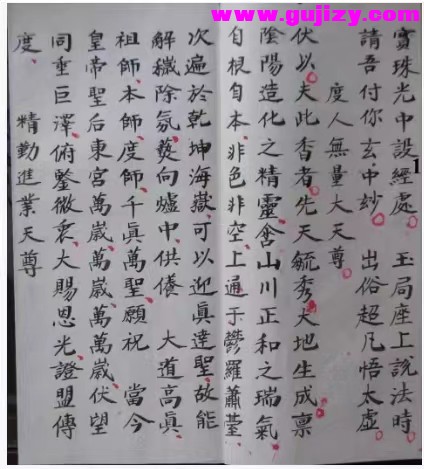 www.gujizy.com
寶珠光中設經處 玉局座上說法時
請吾付你玄中妙 出俗超凡悟太虛
度人無量大天尊
伏以夫此香者先天毓秀大地生成禀
陰陽造化之精靈含山川正和之瑞氣
自根自本非色非空上通于欝羅蕭臺
次遍於乾坤海嶽可以迎眞達聖故能
解穢除氛爇向爐中供養 大道高眞
祖師本師度師千眞萬聖願祝 當今
皇帝聖后東宮萬歲萬歲萬萬歲伏望
同垂巨澤俯鑒微衷大賜恩光證盟傳
度 精勤進業天尊
1